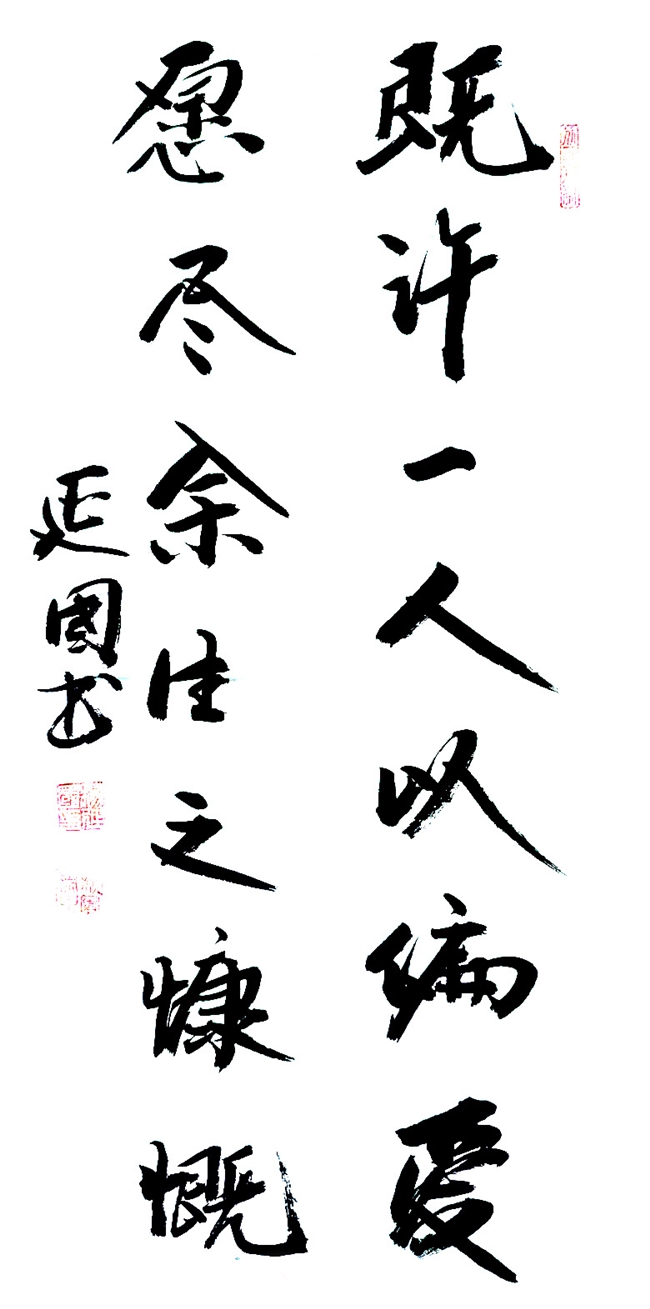 既许一人以偏爱
愿尽余生之慷慨
延國书